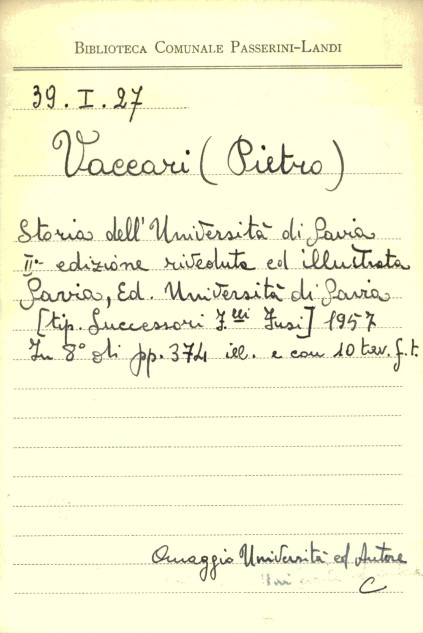 BIBLIOTECA COMUNALE PASSERINI-LANDI
39.I.27
Vaccari (Pietro)
Storia dell'Università di Pavia
IIª edizione riveduta ed illustrata
Pavia, Ed. Università di Pavia
[tip. Successori F.lli Fusi] 1957
In 8° di pp. 374 ill. e con 10 tav. f.t.
Omaggio Università ed Autore
C